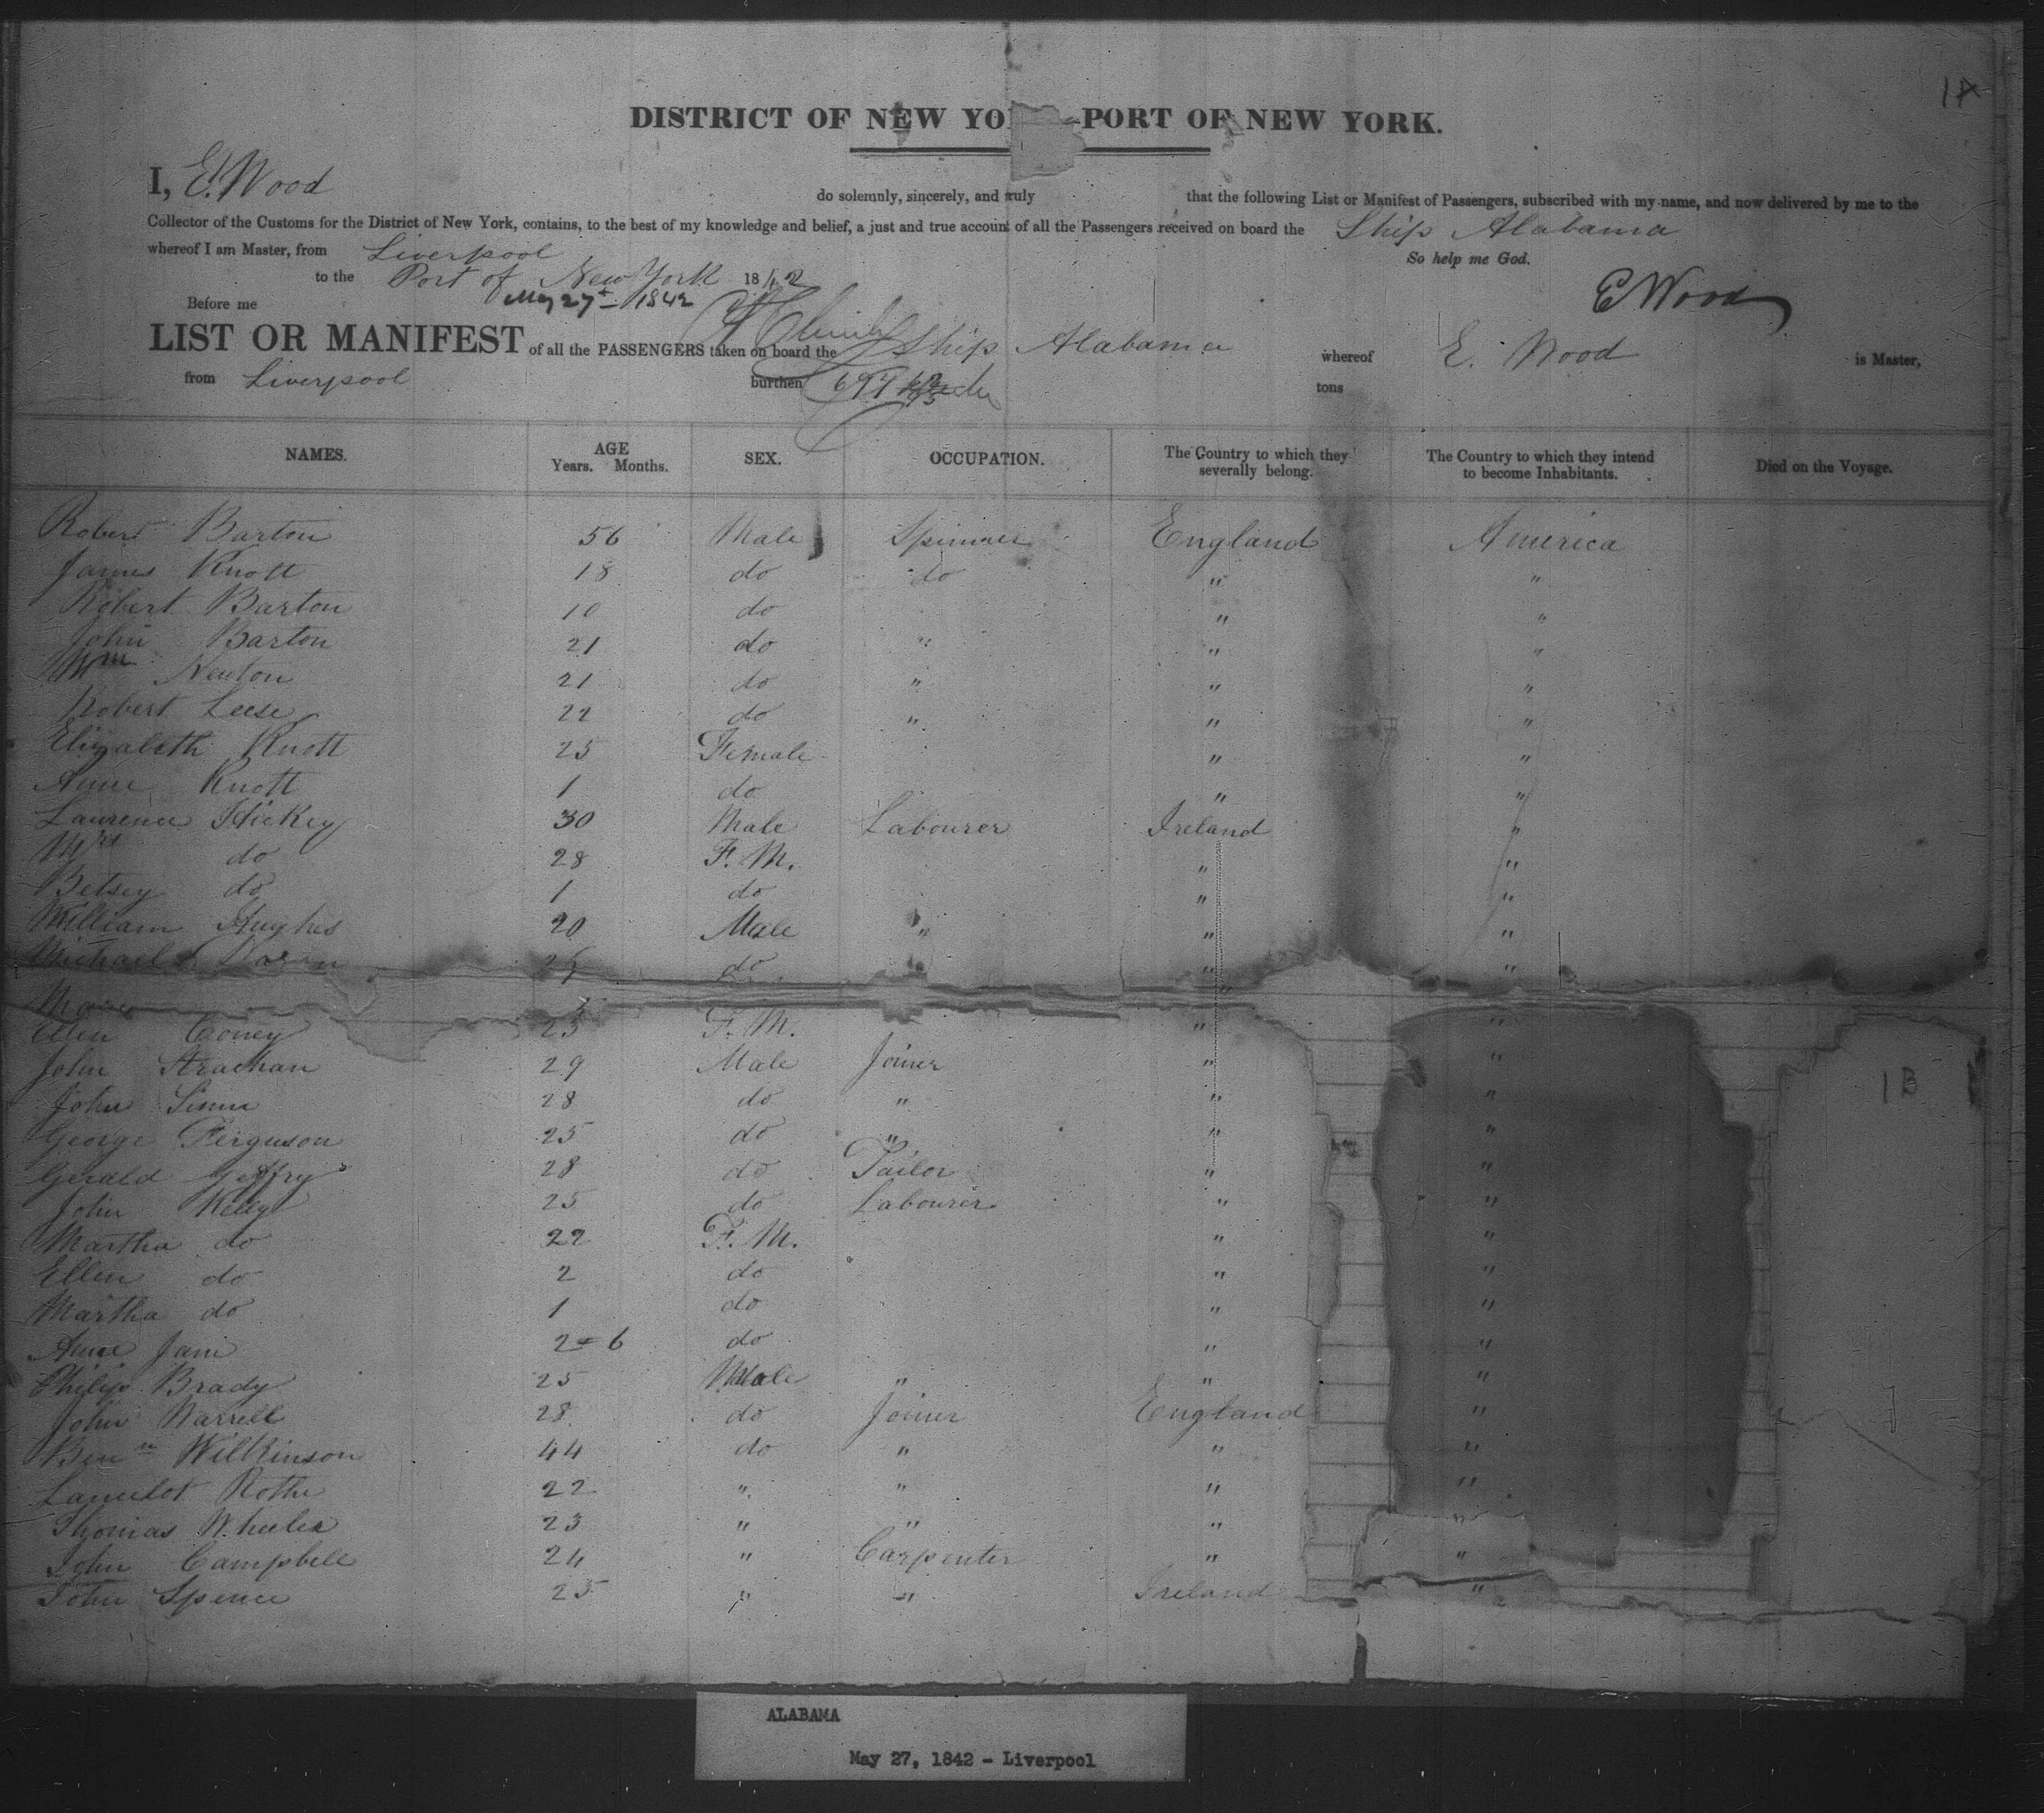 1A
DISTRICT OF NEW YO PORT OF NEW YORK.
I, E. Wood do solemnly, sincerely, and truly that the following List or Manifest of Passengers, subscribed with my name, and now delivered by me to the
Collector of the Customs for the District of New York, contains, to the best of my knowledge and belief, a just and true account of all the Passengers received on board the Ship Alabama
whereof I am Master, from Liverpool So help me God.
to the Port of New York 1842
Before me May 27th 1842 E Wood
LIST OR MANIFEST of all the PASSENGERS taken on board the Ship Alabama whereof E. Wood is Master,
from Liverpool burthen tons
NAMES. AGE Years. Months. SEX. OCCUPATION. The Country to which they severally belong. The Country to which they intend to become Inhabitants. Died on the Voyage.
Robert Barton 56 Male Spinner England America
James Knott 18 do do " "
Robert Barton 10 do " "
John Barton 21 do " " "
Wm Newton 21 do " " "
Robert Leese 22 do " " "
Elizabeth Knott 25 Female " "
Anne Knott 1 do " "
Laurence Hickey 30 Male Labourer Ireland "
Mrs do 28 F. M. " "
Betsey do 1 do " "
William Hughes 20 Male " " "
Michael do " " "
Mary "
Ellen Coney 23 F. M. " "
John Strachan 29 Male Joiner " "
John 28 do " " "
George Ferguson 25 do " " "
Gerald 28 do Tailor " "
John Kelly 25 do Labourer " "
Martha do 22 F. M. " "
Ellen do 2 do " "
Martha do 1 do " "
Anne Jani 2 = 6 do " "
Philip Brady 25 Male " " "
John Warrell 28 do Joiner England "
Benn Wilkinson 44 do " " "
Lancelot Rothe 22 " " " "
Thomas Wheeler 23 " " " "
John Campbell 24 " Carpenter " "
John Spence 25 " " Ireland "
1B
ALABAMA
May 27, 1842 - Liverpool